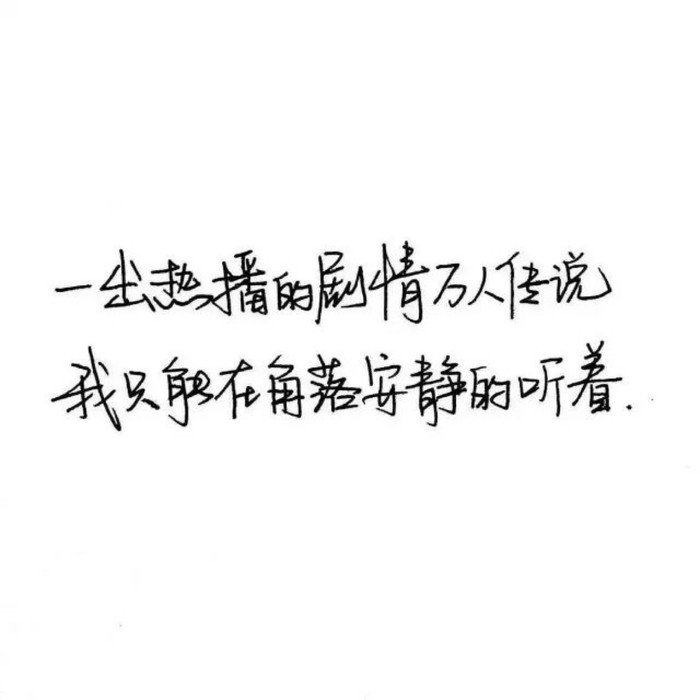 一出热播的剧情万人传说
我只能在角落安静的听着.